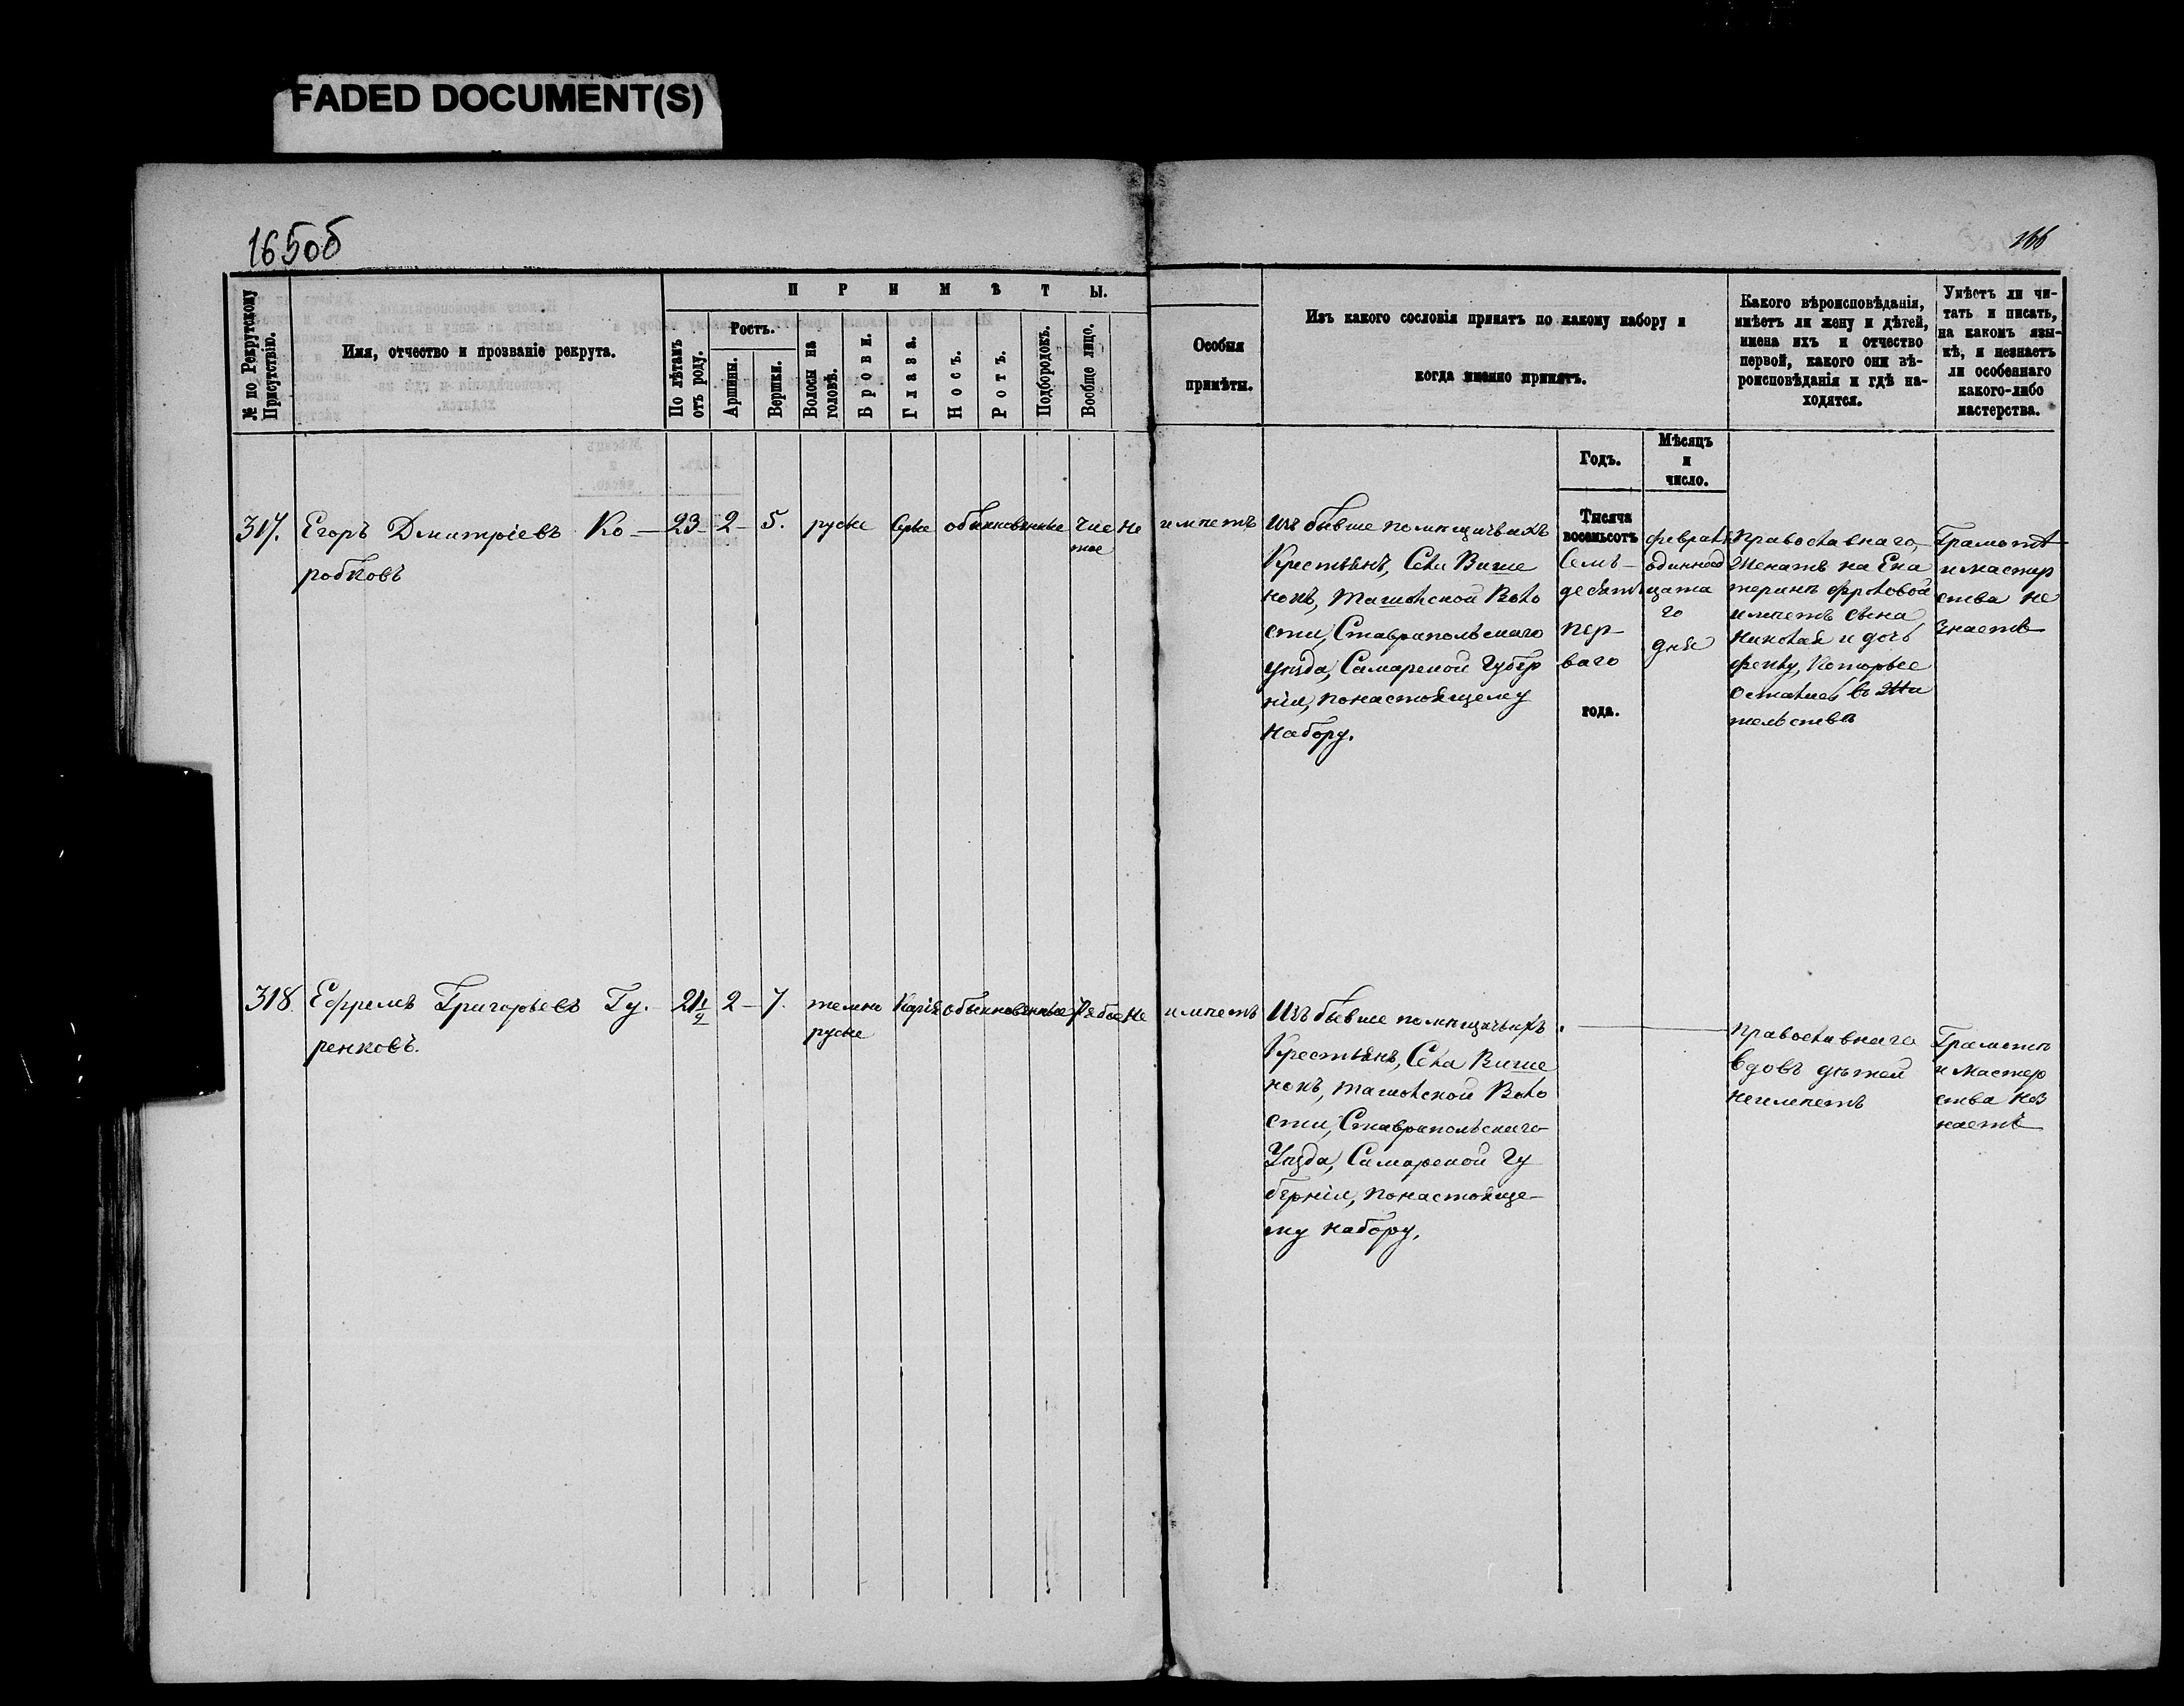 FADED DOCUMENT(S)
165об
166
№ по Рекрутскому Присутствію.
Имя, отчество и прозваніе рекрута.
ПРИМѢТЫ.
По лѣтамъ отъ роду.
Ростъ.
Аршины.
Вершки.
Волосы на головѣ.
Брови.
Глаза.
Носъ.
Ротъ.
Подбородокъ.
Вообще лицо.
Особыя
примѣты.
Изъ какого сословія принятъ по какому набору и
когда именно принятъ.
Годъ.
Мѣсяцъ
и
число.
Какого вѣроисповѣданія,
имѣетъ ли жену и дѣтей,
имена ихъ и отчество
первой, какого они вѣ-
роисповѣданія и гдѣ на-
ходятся.
Умѣетъ ли чи-
тать и писать,
на какомъ язы-
кѣ, и незнаетъ
ли особеннаго
какого-либо
мастерства.
317. Егоръ Дмитріевъ Ко-
робковъ
23 2 5. русые сѣрые обыкновенные чис
тое
не имѣетъ
Изъ бывше помѣщичьихъ
Крестьянъ, Села Више
нокъ, Ташолской Воло
сти, Ставропольскаго
уѣзда, Самарской Губер
ніи, понастоящему
набору.
Тысяча
восемьсотъ
Семь-
десятъ
пер-
ваго
года.
февраля
одиннад
цата
го
дня
Православнаго,
Женатъ на Ека
теринѣ Фроловой
имѣетъ сына
Николая и дочь
Феклу, которые
остались въ жи
тельствѣ
Грамотѣ
и мастер
ства не
знаетъ
318 Ефремъ Григорьевъ Гу.
ренковъ.
21 1/2 2 7. темно
русые
Карія обыкновенные Рябое не имѣетъ
Изъ бывше помѣщичьихъ
Крестьянъ, Села Више
нокъ, Ташолской Воло
сти, Ставропольскаго
Уѣзда, Самарской Гу
берніи, понастояще-
му набору.
Православнаго
вдовъ дѣтей
неимѣетъ
Грамотѣ
и мастер
ства нез
наетъ